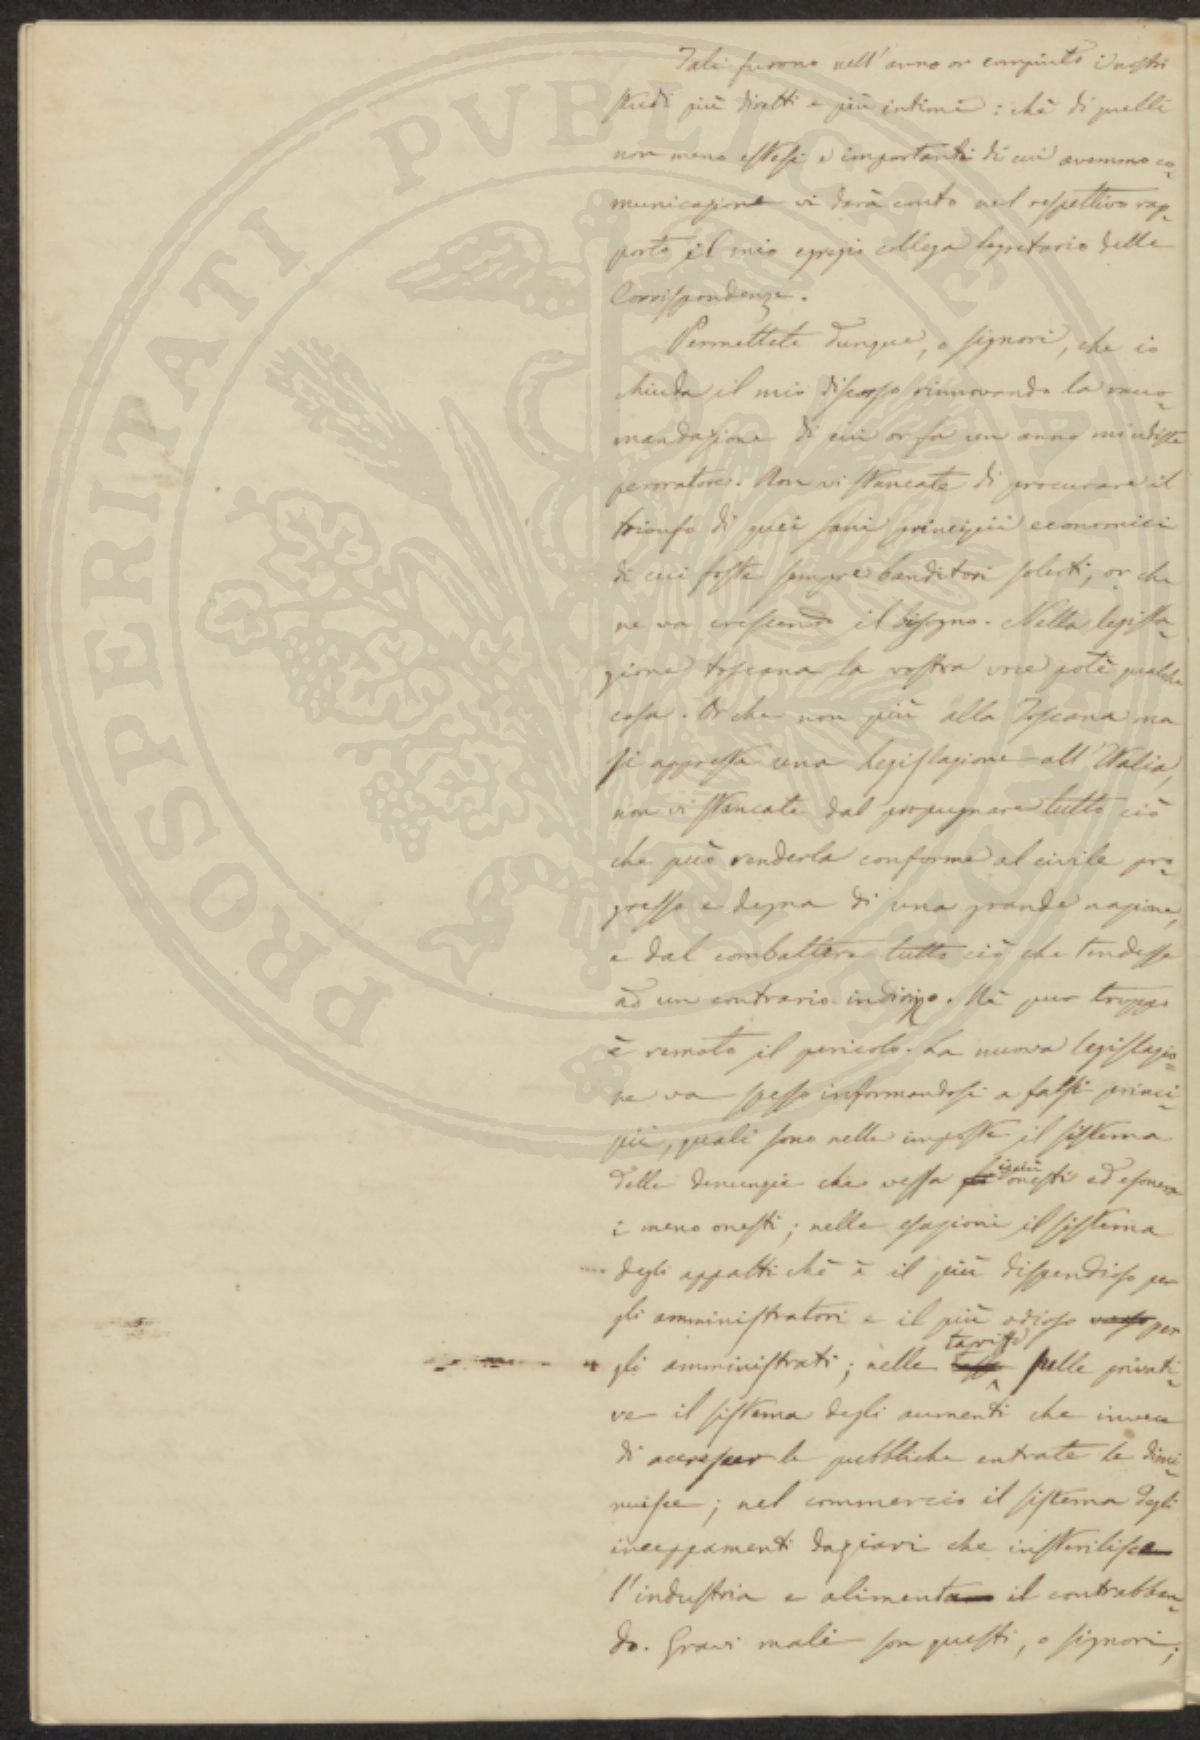 Tali furono nell'anno or compiuto i nostri
studi più diretti e più intimi: chè di quelli
non meno estesi e importanti di cui avemmo co-
municazione vi darà conto nel respettivo rap-
porto il mio egregio collega Segretario delle
Corrispondenze.
Permettete dunque, o signori, che io
chiuda il mio discorso rinnovando la racco-
mandazione di cui or fa un anno mi udiste
peroratore. Non vi stancate di procurare il
trionfo di quei sani principii economici
di cui foste sempre banditori solerti, or che
ne va crescendo il bisogno. Nella legisla-
zione toscana la vostra voce potè qualche
cosa. Or che non più alla Toscana ma
si appresta una legislazione all'Italia,
non vi stancate dal propugnare tutto ciò
che può renderla conforme al civile pro-
gresso e degna di una grande nazione,
e dal combattere tutto ciò che tendesse
ad un contrario indirizzo. Nè pur troppo
è remoto il pericolo. La nuova legislazio-
ne va spesso informandosi a falsi princi-
pii, quali sono nelle imposte il sistema
delle denunzie che vessa i più onesti ed esonera
i meno onesti; nelle esazioni il sistema
degli appalti chè è il più dispendioso per
gli amministratori e il più odioso verso per
gli amministrati; nelle tariffe sulle privati-
ve il sistema degli aumenti che invece
di accrescer le pubbliche entrate le dimi-
nuisce; nel commercio il sistema degli
inceppamenti daziari che insterilisce
l'industria e alimenta il contrabban-
do. Gravi mali son questi, o signori;
PROSPERITATI PVBLICAE AVGENDAE